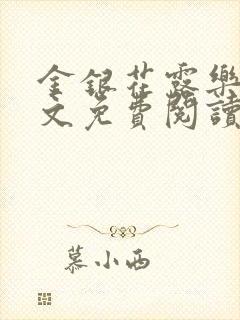 金銀花露樂
文免費閱讀
慕小西